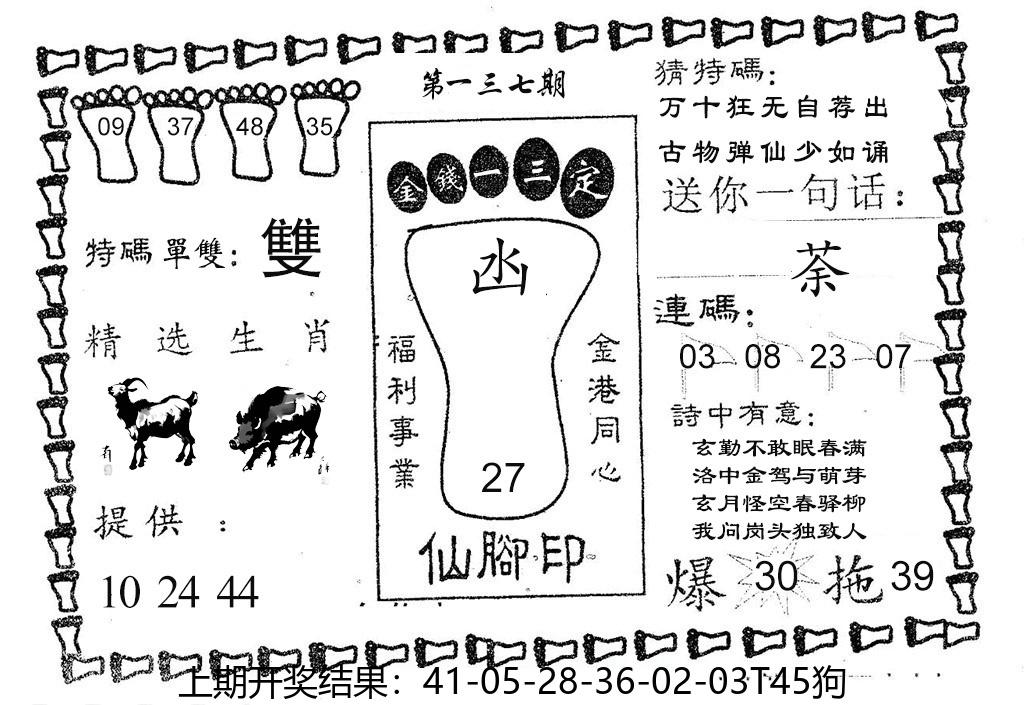 第一三七期
09 37 48 35
特碼單雙：雙
精选生肖
提供：
10 24 44
金錢一三定
凼
福利事業
金港同心
27
仙腳印
猜特碼：
万十狂无自荐出
古物弹仙少如诵
送你一句话：
荼
連碼：
03 08 23 07
詩中有意：
玄勤不敢眠春满
洛中金驾与萌芽
玄月怪空春驿柳
我问岗头独致人
爆 30 拖 39
上期开奖结果：41-05-28-36-02-03T45狗